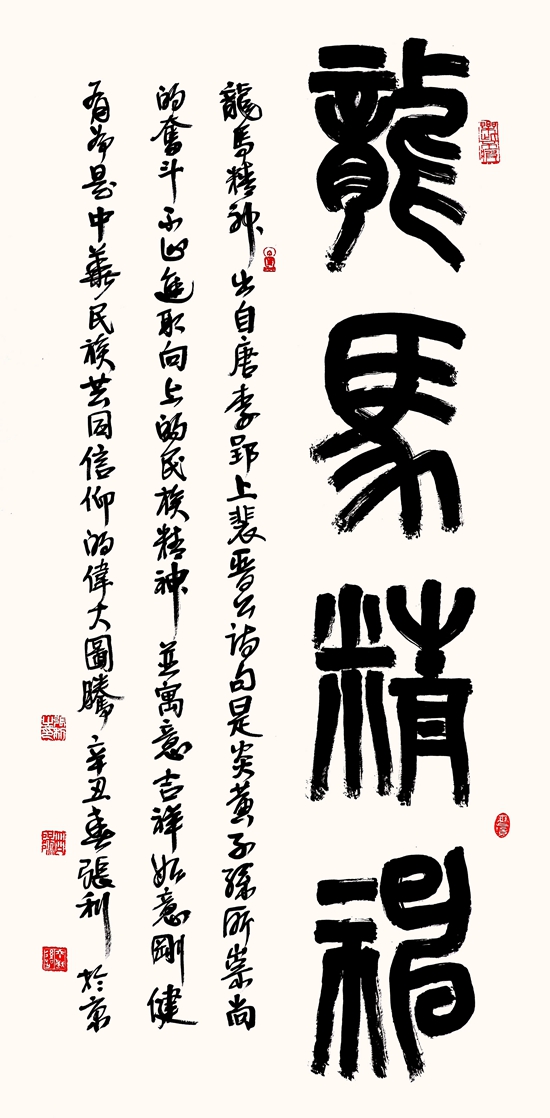 龍馬精神
龍馬精神出自唐李郢上裴晋公詩句是炎黄子孫所崇尚
的奮斗不止進取向上的民族精神並寓意吉祥如意剛健
有為是中華民族共同信仰的偉大圖騰辛丑春張利於京